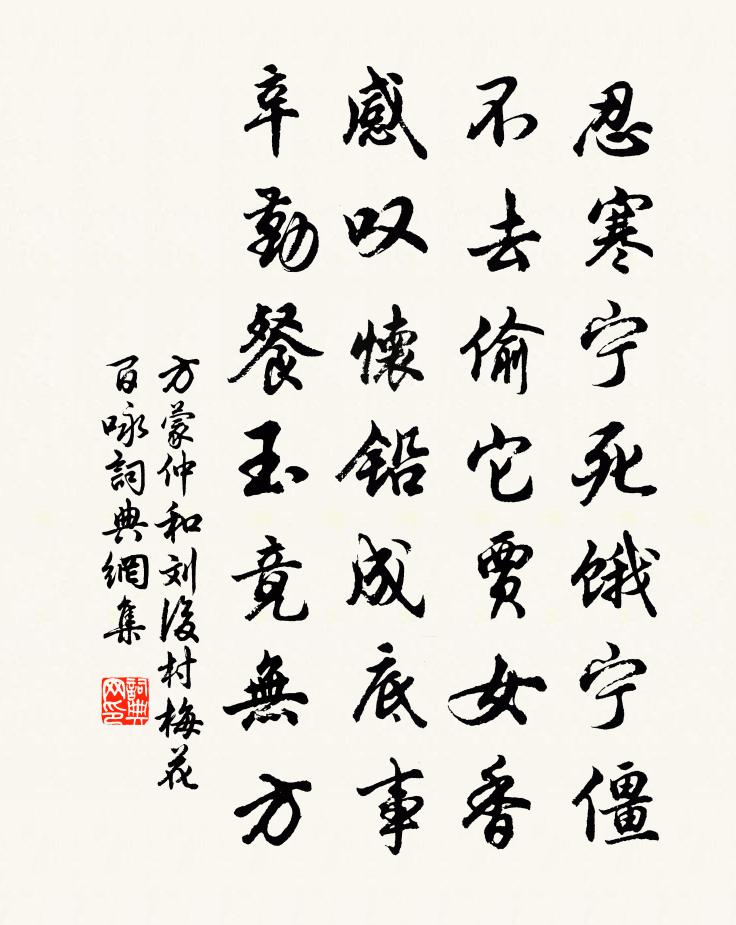 忍寒宁死饿宁僵
不去偷它贾女香
感叹懷铅成底事
辛勤餐玉竟無方
方蒙仲和刘後村梅花
百咏詞典網集
詞典网印